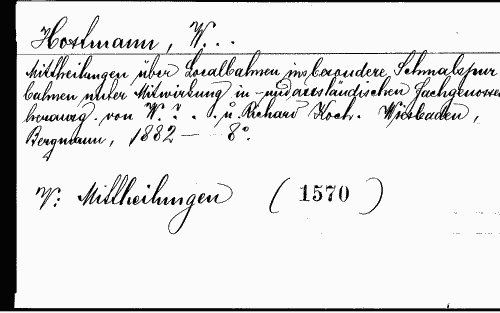 Hostmann, W. . .
Mittheilungen über Localbahnen insbesondere Schmalspur
bahnen unter Mitwirkung in- und ausländischen Fachgenossen
herausg. von W. ? . . u. Richard Koch. Wiesbaden,
Bergmann, 1882 — 8°.
V: Mittheilungen ( 1570 )